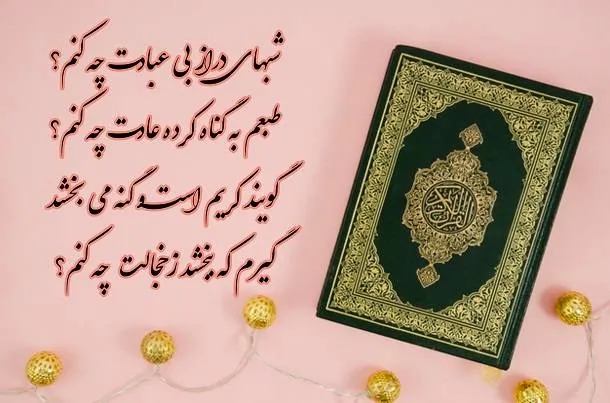 شبهای دراز بی عبادت چه کنم؟
طبعم به گناه کرده عادت چه کنم؟
گویند کریم است و گنه می بخشد
گیرم که ببخشد ز خجالت چه کنم؟
القرآن الكريم